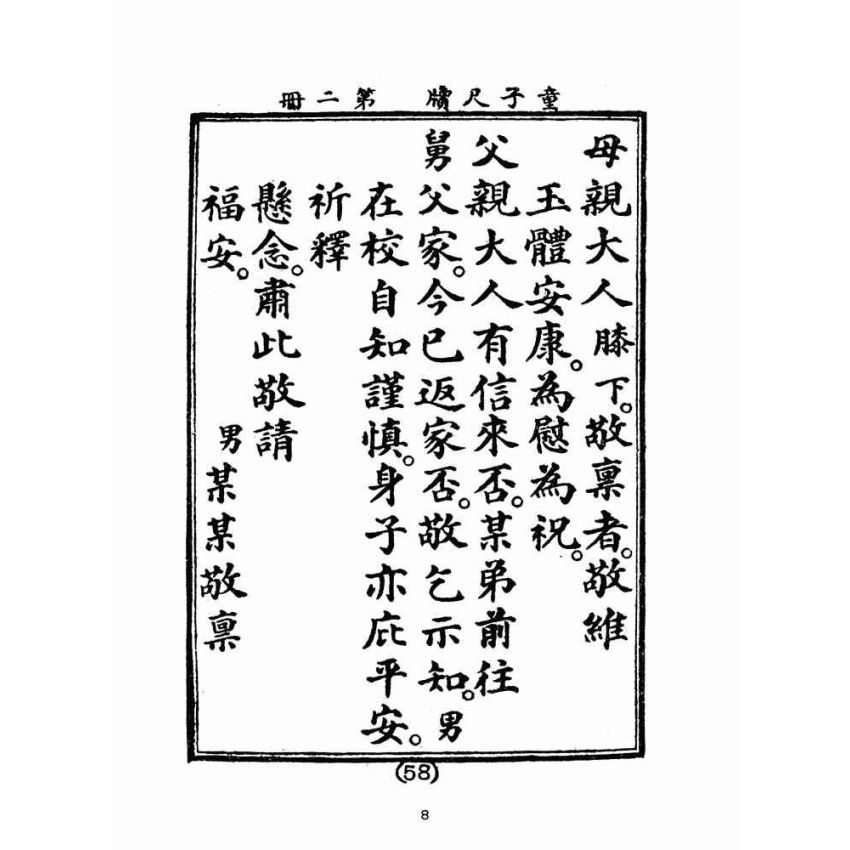 童子尺牘 第二冊
母親大人膝下。敬稟者。敬維
玉體安康。為慰為祝。
父親大人有信來否。某弟前往
舅父家。今已返家否。敬乞示知。男
在校自知謹慎。身子亦庇平安。
祈釋
懸念。肅此敬請
福安。 男某某敬稟
(58)
8